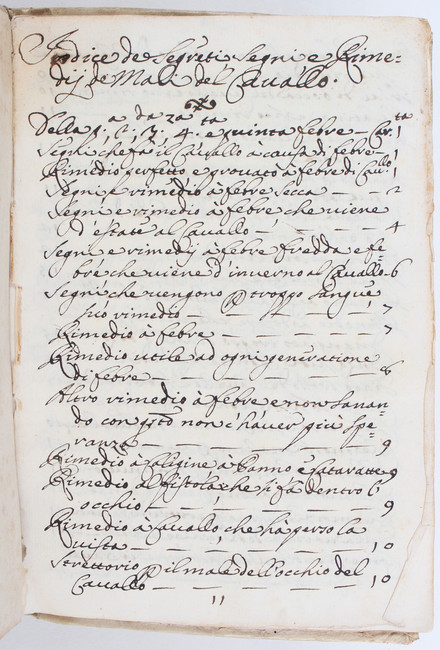 Indice de Segreti Segni e Rime=
dij de Mali del Cavallo.
Della 1.a 2.da 3.za 4.ta e quinta febre — Car.ta 1
Segni che fà il Cavallo à causa di febre — 1
Rimedio perfetto e provato à febre di Cavll. 1
Segni e rimedio à febre secca — — — 2
Segni e rimedio à febre che viene
d'estate al Cavallo — — — — 4
Segni e rimedij à febre fredda e fe=
bre che viene d'inverno al Cavallo — 6
Segni che vengono p troppo sangue
suo rimedio — — — — — 7
Rimedio à febre — — — — — 7
Rimedio utile ad ogni generatione
di febre — — — — — — 8
Altro rimedio à febre e non sanan=
do con qsto non c'hàver più spe=
ranza — — — — — — 9
Rimedio à Caligine à Panno e Cataratte 9
Rimedio al fistola che si fà dentro l'
occhio — — — — — — 9
Rimedio à Cavallo che hà perso la
vista — — — — — — 10
Strettorio p il male dell'occhio del
Cavallo — — — — — — 10
11